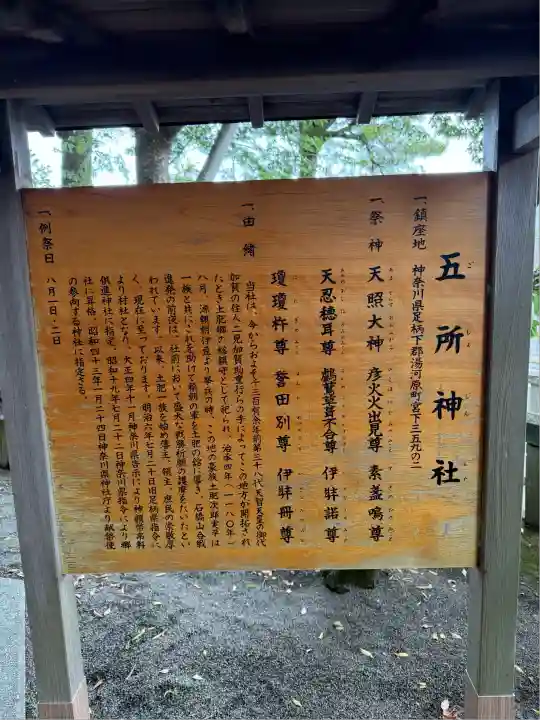 五所神社
一、鎮座地 神奈川県足柄下郡湯河原町宮下三五九の二
一、祭神 天照大神 彦火火出見尊 素盞嗚尊
天忍穂耳尊 鸕鶿草葺不合尊 伊弉諾尊
瓊瓊杵尊 誉田別尊 伊弉冊尊
一、由緒
当社は、今からおよそ千三百有余年前第三十八代天智天皇の御代
加賀の住人二見加賀助重行らの手によってこの地方が開拓され
たとき土肥郷の総鎮守として祀られ、治承四年(一一八〇年)
八月、源頼朝伊豆より挙兵の時、この地の豪族土肥次郎実平は
一族と共にこれを助けて頼朝の軍を土肥の館に導き、石橋山合戦
進発の前夜は、社前において盛大な戦勝祈願の護摩をたいたとい
われています。以来、土肥一族を始め藩主、領主、庶民の崇敬厚
く、現在に至っております。明治六年七月三十日旧足柄県指令に
より村社となり、大正四年十一月神奈川県告示により神饌幣帛料
供進神社に指定、昭和十九年七月二十一日神奈川県指令により郷
社に昇格、昭和四十三年一月二十四日神奈川県神社庁より献幣使
の参向する神社に指定さる。
一、例祭日 八月一日・二日